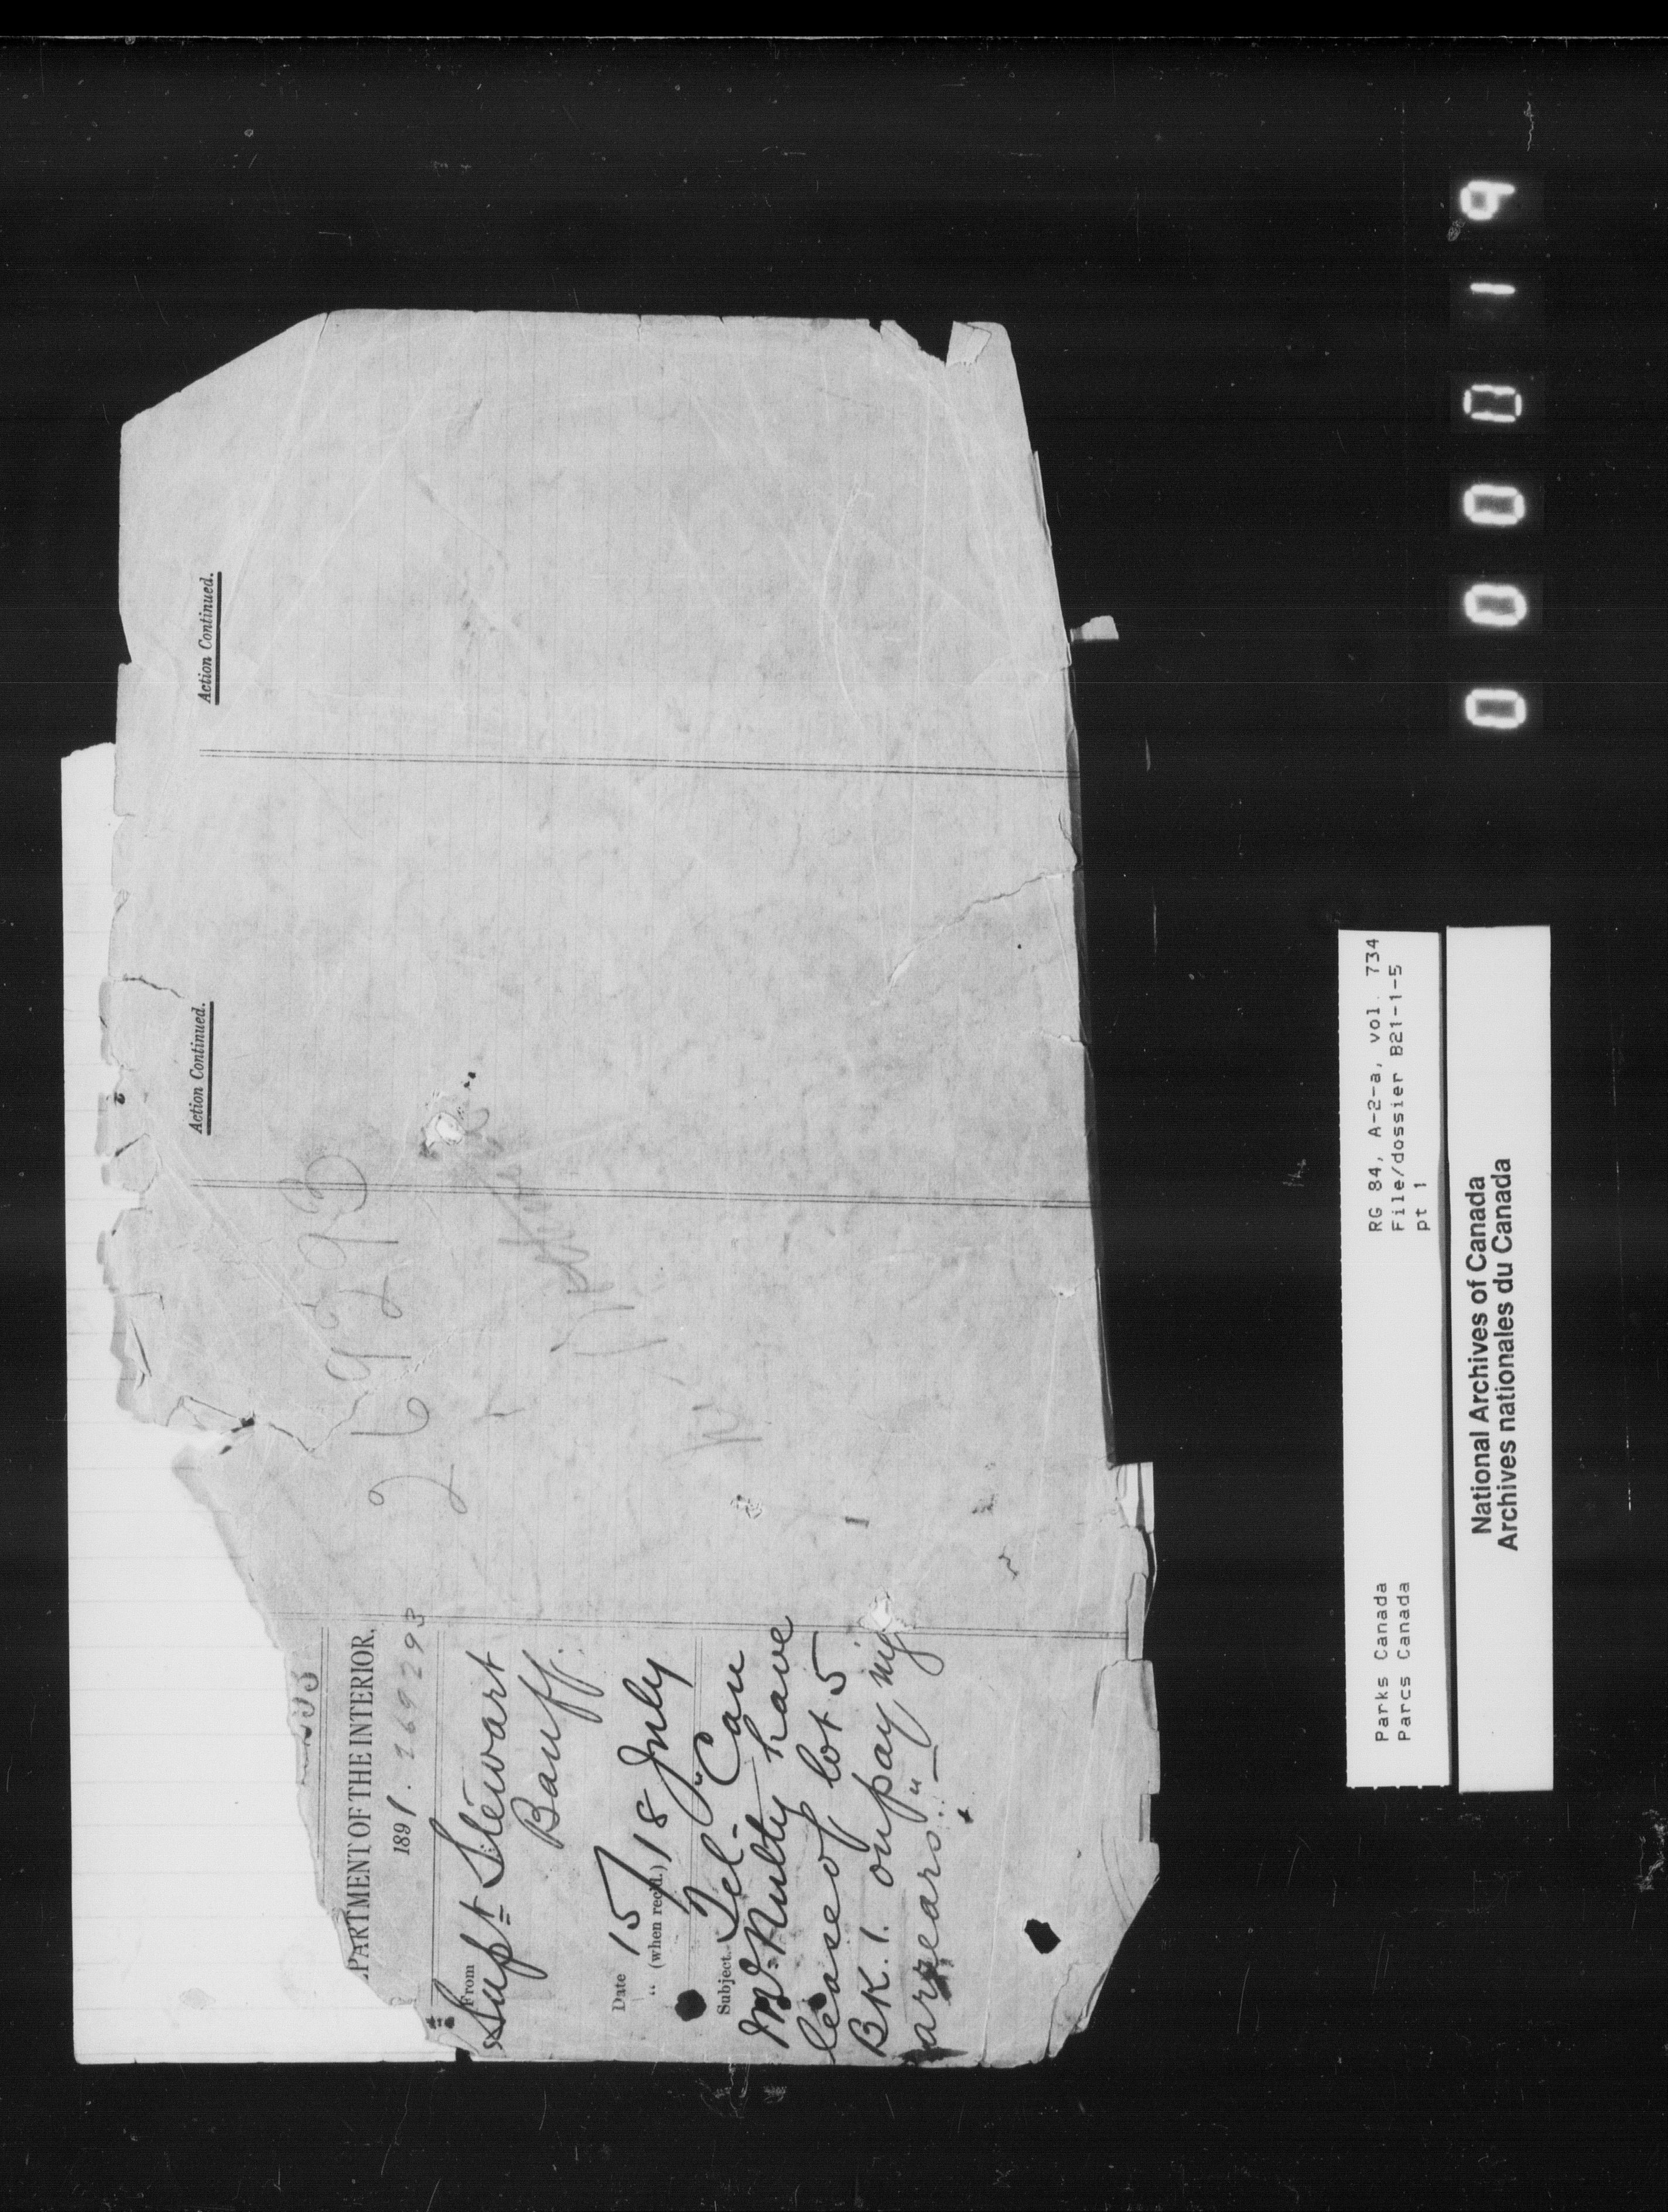 PARTMENT OF THE INTERIOR,
1891. 269293
From
Supt Stewart
Banff.
Date 15/18 July
" (when recd.)
Subject. Tel. "Can
McNulty have
lease of lot 5
BK. 1. on paying
arrears." —
269293
Action Continued.
Action Continued.
Parks Canada
Parcs Canada
RG 84, A-2-a, vol. 734
File/dossier B21-1-5
pt 1
National Archives of Canada
Archives nationales du Canada
000019